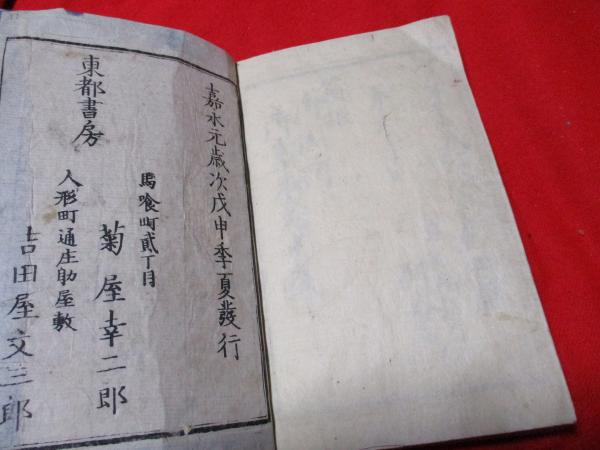 嘉永元歳次戊申季夏發行
東都書房
馬喰町貳丁目
菊屋幸二郎
人形町通庄助屋敷
吉田屋文三郎